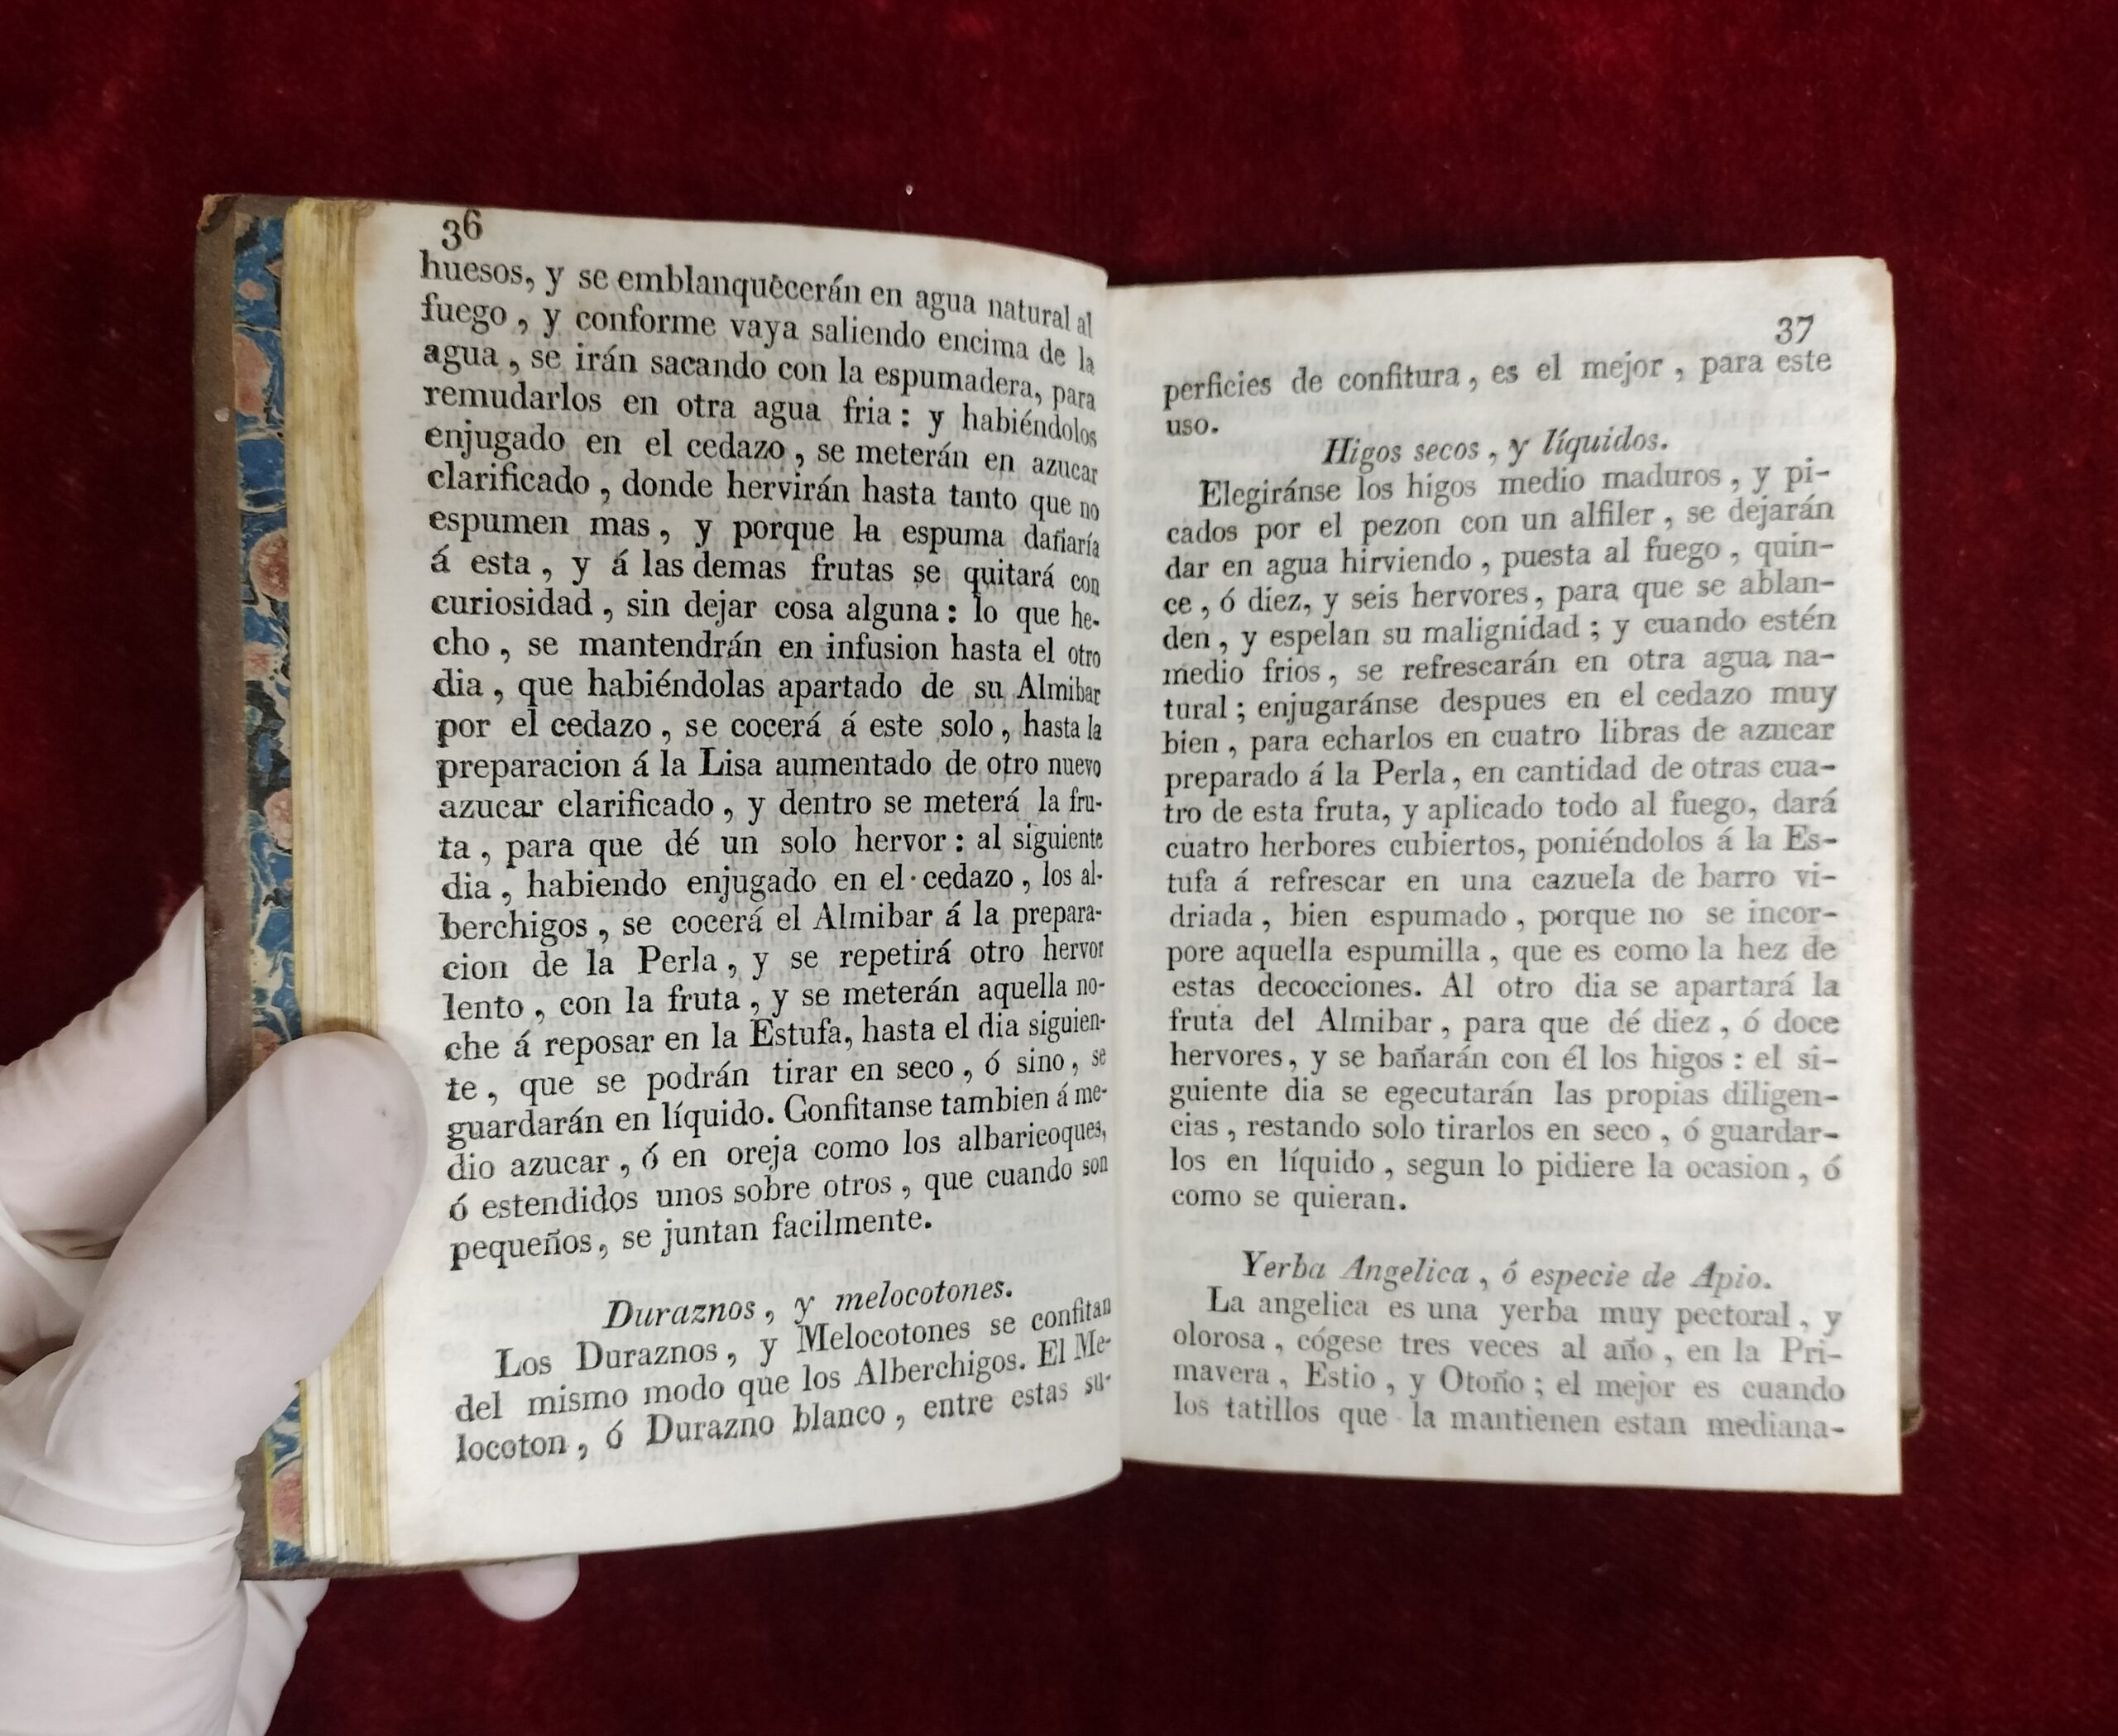 36
huesos, y se emblanquecerán en agua natural al
fuego, y conforme vaya saliendo encima de la
agua, se irán sacando con la espumadera, para
remudarlos en otra agua fria: y habiéndolos
enjugado en el cedazo, se meterán en azucar
clarificado, donde hervirán hasta tanto que no
espumen mas, y porque la espuma dañaría
á esta, y á las demas frutas se quitará con
curiosidad, sin dejar cosa alguna: lo que he-
cho, se mantendrán en infusion hasta el otro
dia, que habiéndolas apartado de su Almibar
por el cedazo, se cocerá á este solo, hasta la
preparacion á la Lisa aumentado de otro nuevo
azucar clarificado, y dentro se meterá la fru-
ta, para que dé un solo hervor: al siguiente
dia, habiendo enjugado en el cedazo, los al-
berchigos, se cocerá el Almibar á la prepara-
cion de la Perla, y se repetirá otro hervor
lento, con la fruta, y se meterán aquella no-
che á reposar en la Estufa, hasta el dia siguien-
te, que se podrán tirar en seco, ó sino, se
guardarán en líquido. Confitanse tambien á me-
dio azucar, ó en oreja como los albaricoques,
ó estendidos unos sobre otros, que cuando son
pequeños, se juntan facilmente.
Duraznos, y melocotones.
Los Duraznos, y Melocotones se confitan
del mismo modo que los Alberchigos. El Me-
locoton, ó Durazno blanco, entre estas su-
37
perficies de confitura, es el mejor, para este
uso.
Higos secos, y líquidos.
Elegiránse los higos medio maduros, y pi-
cados por el pezon con un alfiler, se dejarán
dar en agua hirviendo, puesta al fuego, quin-
ce, ó diez, y seis hervores, para que se ablan-
den, y espelan su malignidad; y cuando estén
medio frios, se refrescarán en otra agua na-
tural; enjugaránse despues en el cedazo muy
bien, para echarlos en cuatro libras de azucar
preparado á la Perla, en cantidad de otras cua-
tro de esta fruta, y aplicado todo al fuego, dará
cuatro herbores cubiertos, poniéndolos á la Es-
tufa á refrescar en una cazuela de barro vi-
driada, bien espumado, porque no se incor-
pore aquella espumilla, que es como la hez de
estas decocciones. Al otro dia se apartará la
fruta del Almibar, para que dé diez, ó doce
hervores, y se bañarán con él los higos: el si-
guiente dia se egecutarán las propias diligen-
cias, restando solo tirarlos en seco, ó guardar-
los en líquido, segun lo pidiere la ocasion, ó
como se quieran.
Yerba Angelica, ó especie de Apio.
La angelica es una yerba muy pectoral, y
olorosa, cógese tres veces al año, en la Pri-
mavera, Estio, y Otoño; el mejor es cuando
los tatillos que la mantienen estan mediana-